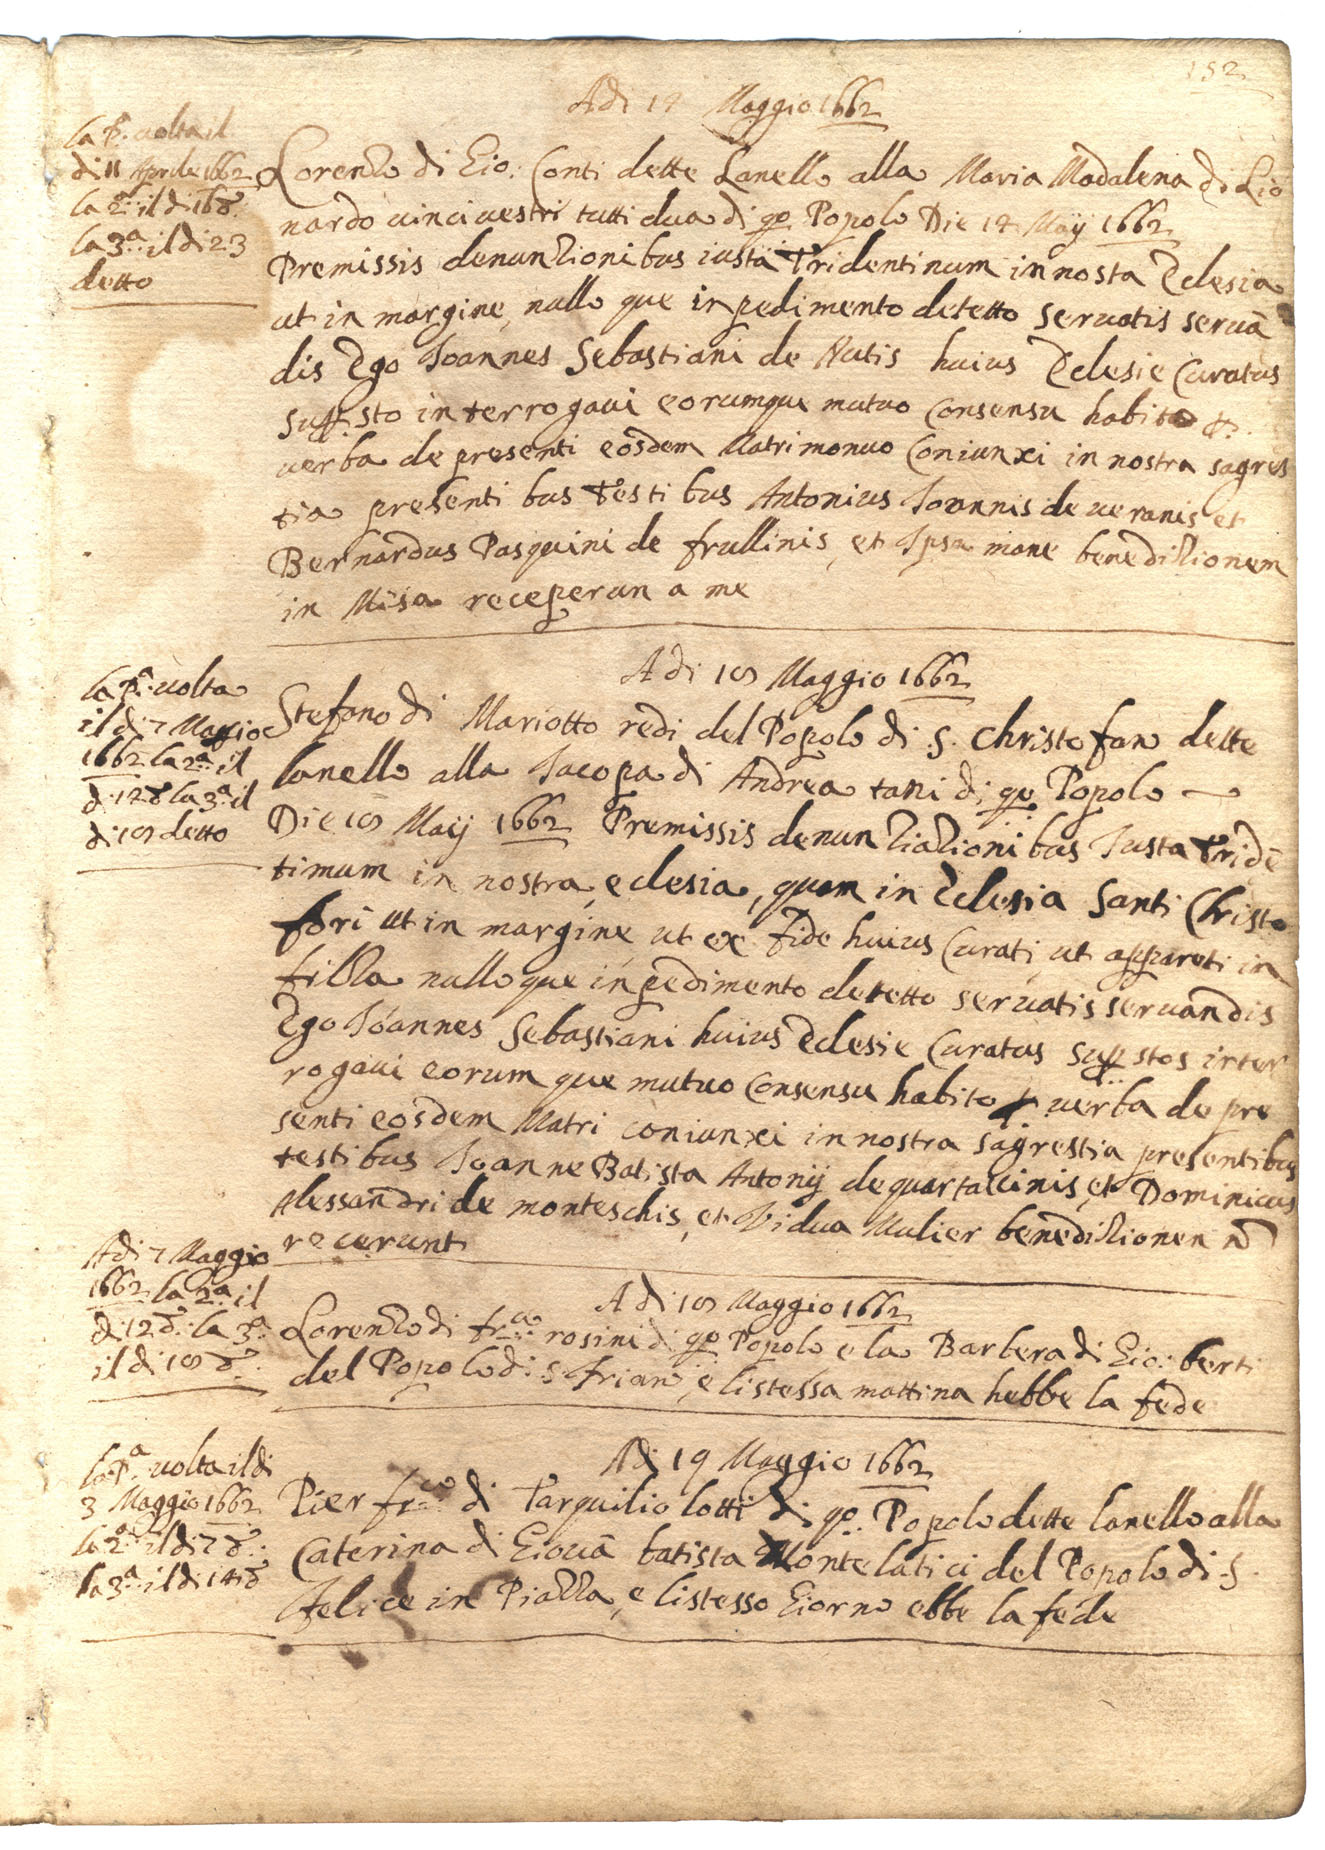 152
Adi 14 Maggio 1662
la pª. uolta il
di 11 Aprile 1662
la 2ª. il di 16 d°.
la 3ª. il di 23
detto
Lorenzo di Gio: Conti dette Lanello alla Maria Madalena di Lio
nardo uinciuestri tutti dua di qo. Popolo Die 14 Maÿ 1662
Premissis denunzionibus iusta Tridentinum in nosta Eclesia
ut in margine, nullo que inpedimento detetto seruatis seruā
dis Ego Joannes Sebastiani de Nutis huius Eclesie Curatus
supp.sto interrogaui eorumque mutuo Consensu habito p.
uerba de presenti eosdem Matrimonuo Coniunxi in nostra sagres
tia presentibus testibus Antonius Joannis de ueranis et
Bernardus Pasquini de frullinis, et Ipsa mane benedizionem
in Misa receperun a me
Adi 18 Maggio 1662
la pª. uolta
il di 7 Maggio
1662 la 2ª. il
di 12 d° la 3ª. il
di 18 detto
Stefano di Mariotto redi del Popolo di .S. Christofan dette
lanello alla Jacopa di Andrea tani di qo. Popolo —
Die 18 Maij 1662 Premissis denunziazionibus Justa Tridē
timum in nostra eclesia, quam in Eclesia Santi Christo
fori ut in margine, ut ex fide huius Curati, ut appareti in
filza nullo que inpedimento detetto seruatis seruandis
Ego Joannes Sebastiani huius Eclesie Curatus supp.stos inter
rogaui eorum que mutuo Consensu habito p uerba de pre
senti eosdem Matri coniunxi in nostra sagrestia presentibus
testibus Joanne Batista Antonij de quartaccinis, et Dominicus
Alessandri de monteschis, et Vidua Mulier benedizionen nō
recerunt
Adi 7 Maggio
1662 la 2ª. il
di 12 d°. la 3ª.
il di 18 d°.
Adi 18 Maggio 1662
Lorenzo di fr.co rosini di qo. Popolo e la Barbera di Gio: berti
del Popolo di .S. frian, e listessa mattina hebbe la fede
la pª. uolta il di
3 Maggio 1662
la 2ª. il di 7 d°.
la 3ª. il di 14 d°
Adi 19 Maggio 1662
Pier fr.co di Tarquilio lotti di qo. Popolo dette lanello alla
Caterina di Giouā batista Montelatici del Popolo di .S.
felice in Piazza, e listesso Giorno ebbe la fede